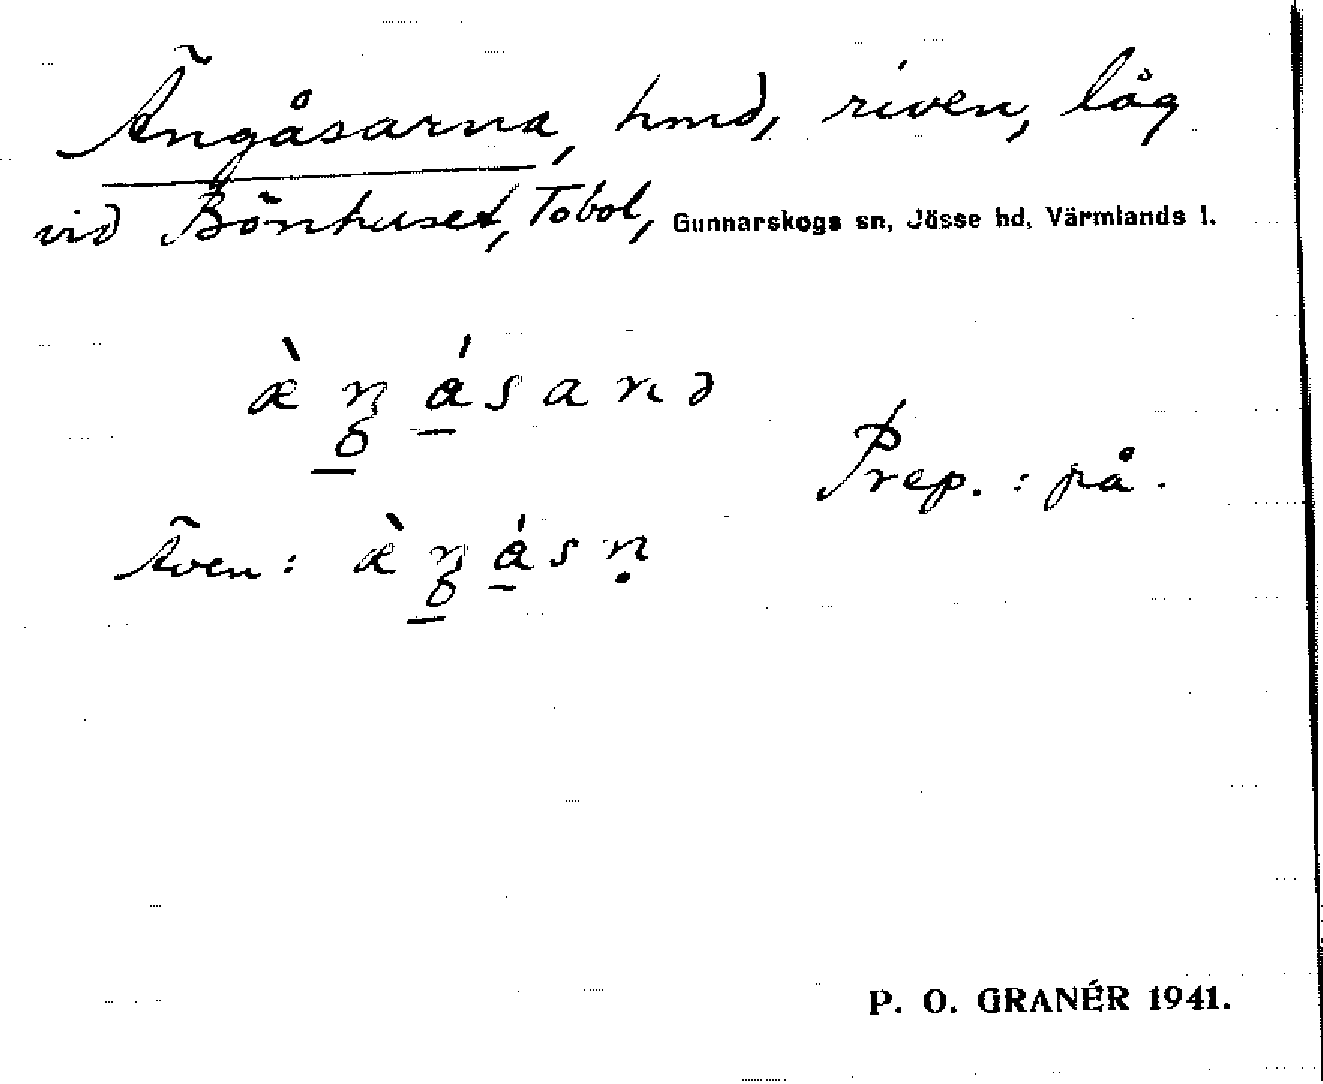 Ängåsarna, hmd, riven, låg
vid Bönhuset, Tobol, Gunnarskogs sn, Jösse hd, Värmlands l.
æ̀ n g á s a n ə
Prep. : på.
Även : æ̀ n g á s ṇ
P. O. GRANÉR 1941.